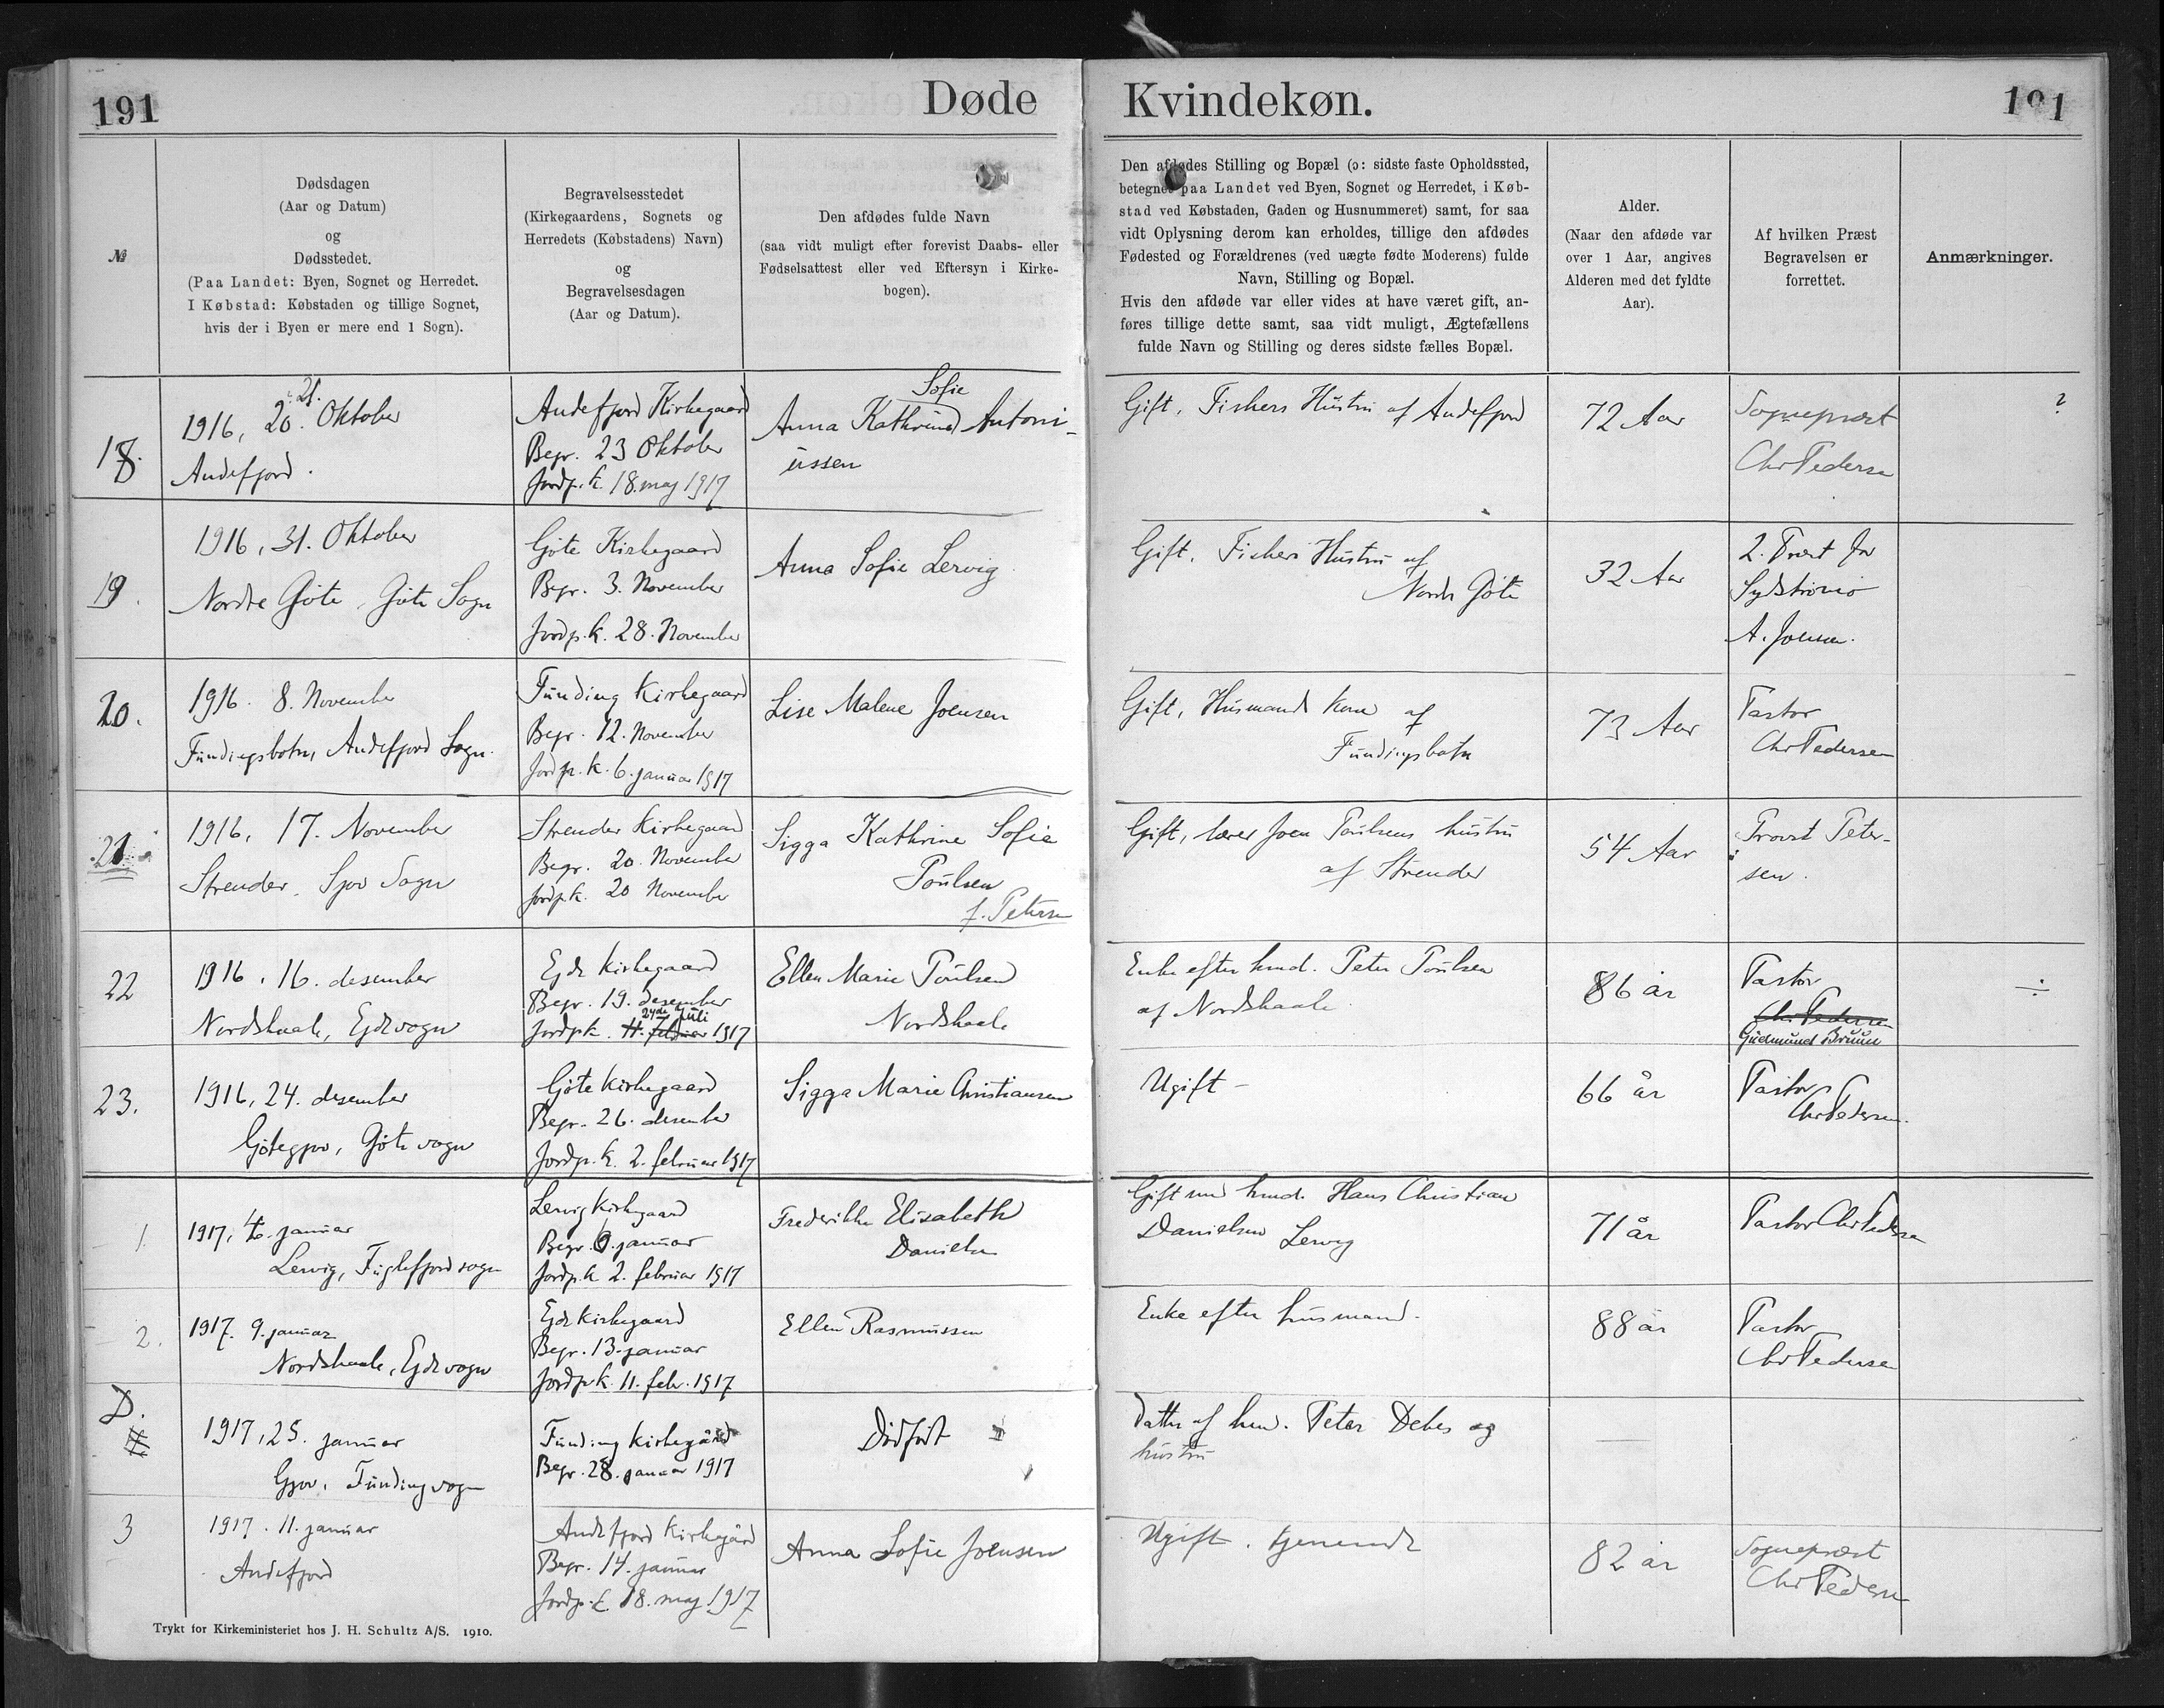 191
Døde
Kvindekøn.
191
№
Dødsdagen
(Aar og Datum)
og
Dødsstedet.
(Paa Landet: Byen, Sognet og Herredet.
I Købstad: Købstaden og tillige Sognet,
hvis der i Byen er mere end 1 Sogn).
Begravelsesstedet
(Kirkegaardens, Sognets og
Herredets (Købstadens) Navn)
og
Begravelsesdagen
(Aar og Datum).
Den afdødes fulde Navn
(saa vidt muligt efter forevist Daabs- eller
Fødselsattest eller ved Eftersyn i Kirke-
bogen).
Den afdødes Stilling og Bopæl (ɔ: sidste faste Opholdssted,
betegnet paa Landet ved Byen, Sognet og Herredet, i Køb-
stad ved Købstaden, Gaden og Husnummeret) samt, for saa
vidt Oplysning derom kan erholdes, tillige den afdødes
Fødested og Forældrenes (ved uægte fødte Moderens) fulde
Navn, Stilling og Bopæl.
Hvis den afdøde var eller vides at have været gift, an-
føres tillige dette samt, saa vidt muligt, Ægtefællens
fulde Navn og Stilling og deres sidste fælles Bopæl.
Alder.
(Naar den afdøde var
over 1 Aar, angives
Alderen med det fyldte
Aar).
Af hvilken Præst
Begravelsen er
forrettet.
Anmærkninger.
18.
21.
1916, 20. Oktober
Andefjord.
Andefjord Kirkegaard
Begr. 23 Oktober
Jordp. k. 18. maj 1917
Sofie
Anna Kathrine Antoni-
ussen
Gift, Fiskers Hustru af Andefjord
72 Aar
Sognepræst
Chr Pedersen
?
19.
1916, 31. Oktober
Nordre Gøte, Gøte Sogn
Gøte Kirkegaard
Begr. 3. November
Jordp. k. 28. November
Anna Sofie Lervig
Gift, Fiskers Hustru af
Nordre Gøte
32 Aar
2. Præst for
Sydstrømø
A. Joensen.
20.
1916. 8. November
Fundingsbotn, Andefjord Sogn.
Funding Kirkegaard
Begr. 12. November
Jordp. k. 6. januar 1917
Lise Malene Joensen
Gift, Husmands Kone af
Fundingsbotn
73 Aar
Pastor
Chr Pedersen
21
1916, 17. November
Strender, Sjov Sogn
Strender Kirkegaard
Begr. 20. November
Jordp. k. 20 November
Sigga Kathrine Sofie
Poulsen
f. Petersen
Gift, lærer Joen Poulsens hustru
af Strender
54 Aar
Provst Peter-
sen.
22
1916. 16. desember
Nordskaale, Ejde sogn
Ejde Kirkegaard
Begr. 19. desember
24de Juli
Jordp k. 11. februar 1917
Ellen Marie Poulsen
Nordskaale
Enke efter husmd. Peter Poulsen
af Nordskaale
86 år
Pastor
Chr Pedersen
Gudmund Bruun
÷
23.
1916, 24. desember
Gøtegjov, Gøte sogn
Gøte Kirkegaard
Begr. 26. desember
Jordp. k. 2. februar 1917
Sigga Marie Christiansen
Ugift –
66 år
Pastor
Chr Pedersen.
1.
1917, 4. januar
Lervig, Fuglefjord sogn
Lervig Kirkegaard
Begr. 6. januar
Jordp. k 2. februar 1917
Frederikke Elisabeth
Danielsen
Gift med husmd. Hans Christian
Danielsen Lervig
71 år
Pastor Chr Pedersen
2.
1917. 9. januar
Nordskaale, Ejde sogn
Ejde Kirkegaard
Begr. 13. januar
Jordp k. 11. febr. 1917
Ellen Rasmussen
Enke efter husmand.
88 år
Pastor
Chr Pedersen
D.
1917, 25. januar
Gjov, Funding sogn
Funding Kirkegård
Begr. 28. januar 1917
Dødfødt
Datter af husmd. Peter Debes og
hustru
3
1917. 11. januar
Andefjord
Andefjord Kirkegård
Begr. 14. januar
Jordp. k. 18. maj 1917
Anna Sofie Joensen
Ugift. tjenende
82 år
Sognepræst
Chr Pedersen
Trykt for Kirkeministeriet hos J. H. Schultz A/S. 1910.